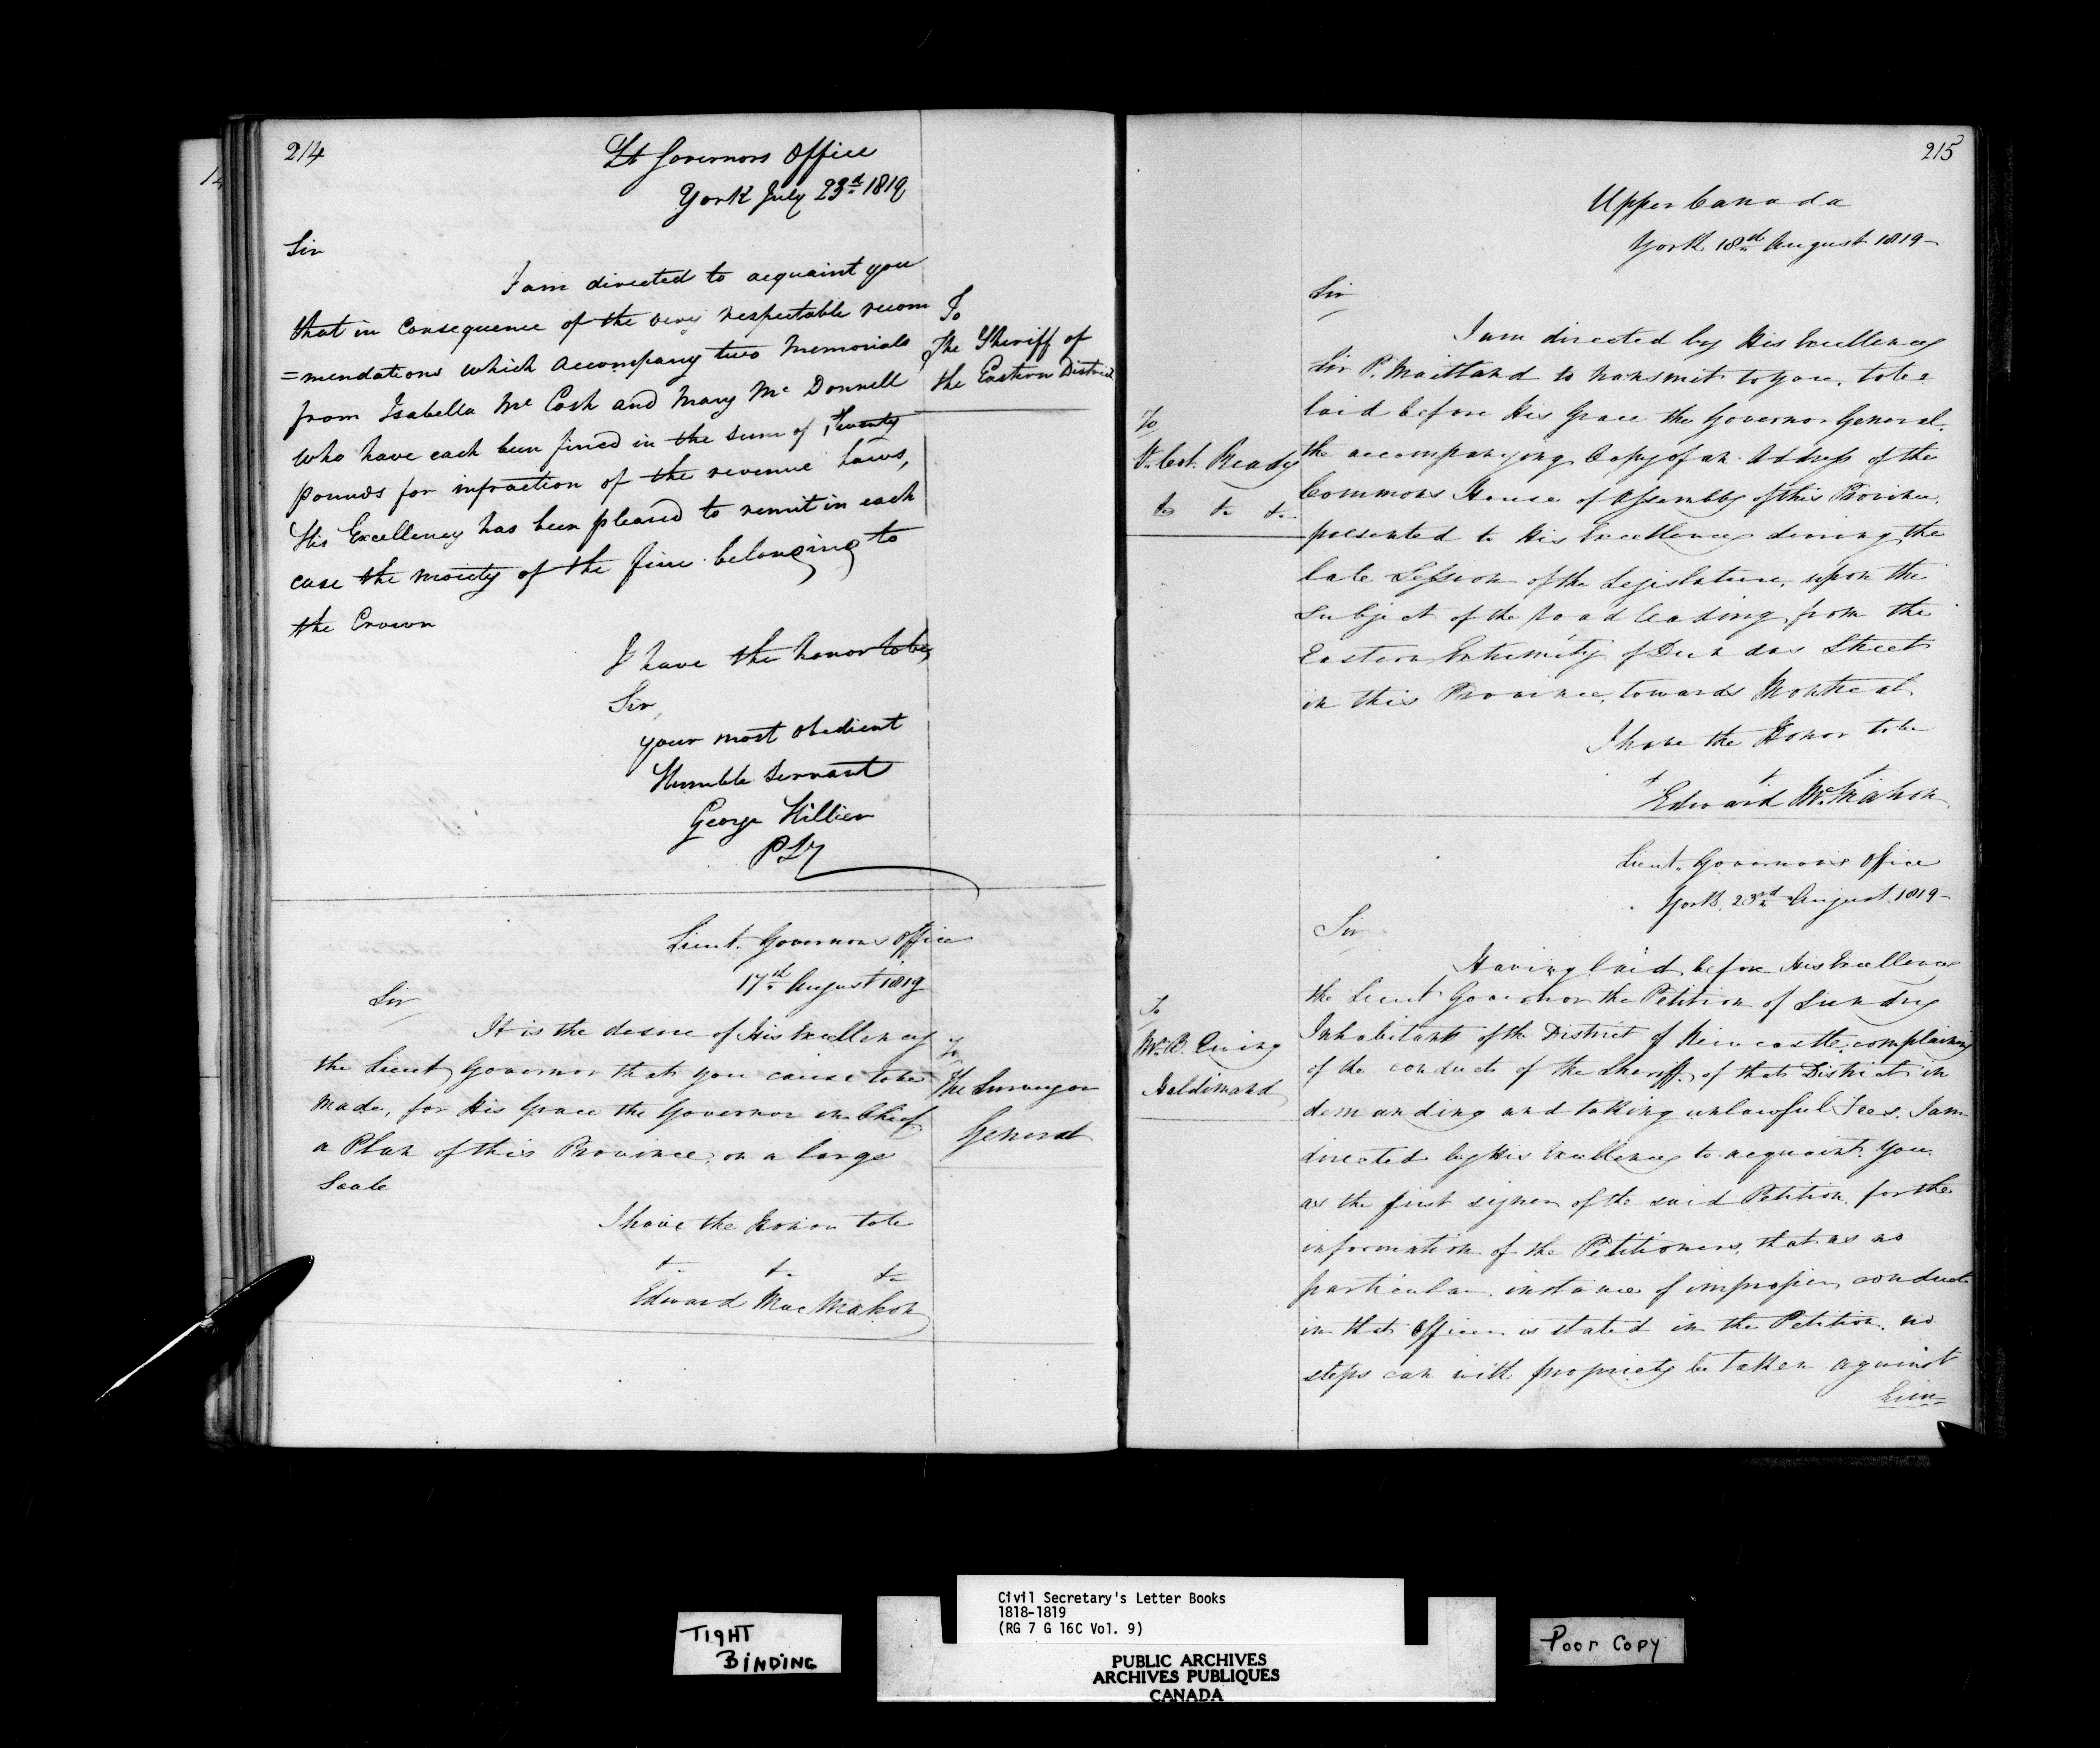 214
Lt Governors Office
York July 23d 1819
Sir
I am directed to acquaint you
that in Consequence of the very respectable recom
=mendations which accompany two Memorials
from Isabella Mc Cosh and Mary Mc Donnell
who have each been fined in the sum of Twenty
pounds for infraction of the revenue laws,
His Excellency has been pleased to remit in each
case the moiety of the fine belonging to
the Crown
I have the honor to be,
Sir,
your most obedient
Humble Servant
George Hillier
To
The Sheriff of
the Eastern District
Lieut. Governors Office
17th August 1819
Sir
It is the desire of His Excellency
the Lieut Governor that you cause to be
made, for His Grace the Governor in Chief
a Plan of this Province, on a large
Scale
I have the Honor to be
&c &c &c
Edward Mac Mahon
To
The Surveyor
General
215
Upper Canada
York 18th August 1819
Sir
I am directed by His Excellency
Sir P. Maitland to transmit to you, to be
laid before His Grace the Governor General
the accompanying Copy of an Address of the
Commons House of Assembly of this Province,
presented to His Excellency during the
late Session of the Legislature, upon the
subject of the road leading from the
Eastern Extremity of Dundas Street
in this Province, towards Montreal
I have the Honor to be
& & &
Edward McMahon
To
Col. Ready
&c &c &c
Lieut. Governor's Office
York 23rd August 1819
Sir
Having laid before His Excellency
the Lieut Governor the Petition of Sundry
Inhabitants of the District of Newcastle complaining
of the conduct of the Sheriff of that District in
demanding and taking unlawful Fees. I am
directed by His Excellency to acquaint you
as the first signer of the said Petition, for the
information of the Petitioners, that as no
particular instance of improper conduct
in that Officer is stated in the Petition, no
steps can with propriety be taken against
him
To
Mr B. Ewing
Haldimand
TIGHT
BINDING
Civil Secretary's Letter Books
1818-1819
(RG 7 G 16C Vol. 9)
PUBLIC ARCHIVES
ARCHIVES PUBLIQUES
CANADA
Poor Copy